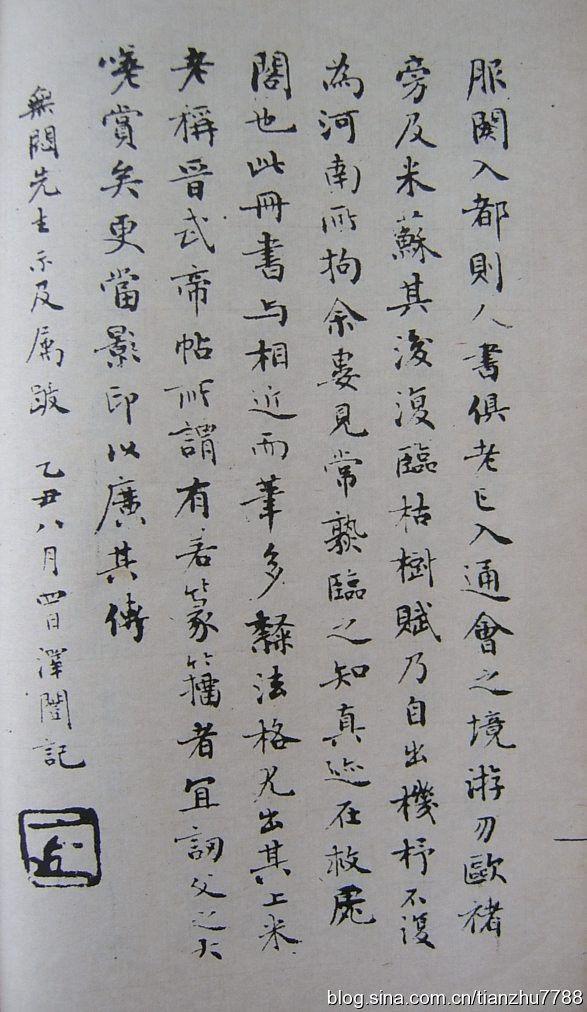 服闋入都則人書俱老已入通會之境游刃歐褚
旁及米蘇其後復臨枯樹賦乃自出機杼不復
為河南所拘余婁見常熟臨之知真迹在救虒
閣也此冊書与相近而筆多隸法格尤出其上米
老稱晉武帝帖所謂有若篆籀者宜訒父之大
嗟賞矣更當影印以廣其傳
無悶先生示及属跋 乙丑八月四日澤闓記
blog.sina.com.cn/tianzhu7788